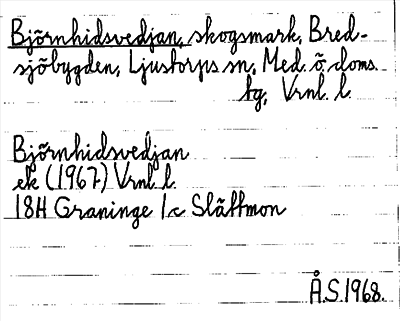 Björnhidsvedjan, skogsmark, Bred-
sjöbygden, Ljustorps sn, Med. ö. doms.
tg, Vrnl. l.
Björnhidsvedjan
ek (1967) Vrnl l.
18H Graninge 1c Slättmon
Å.S.1968.